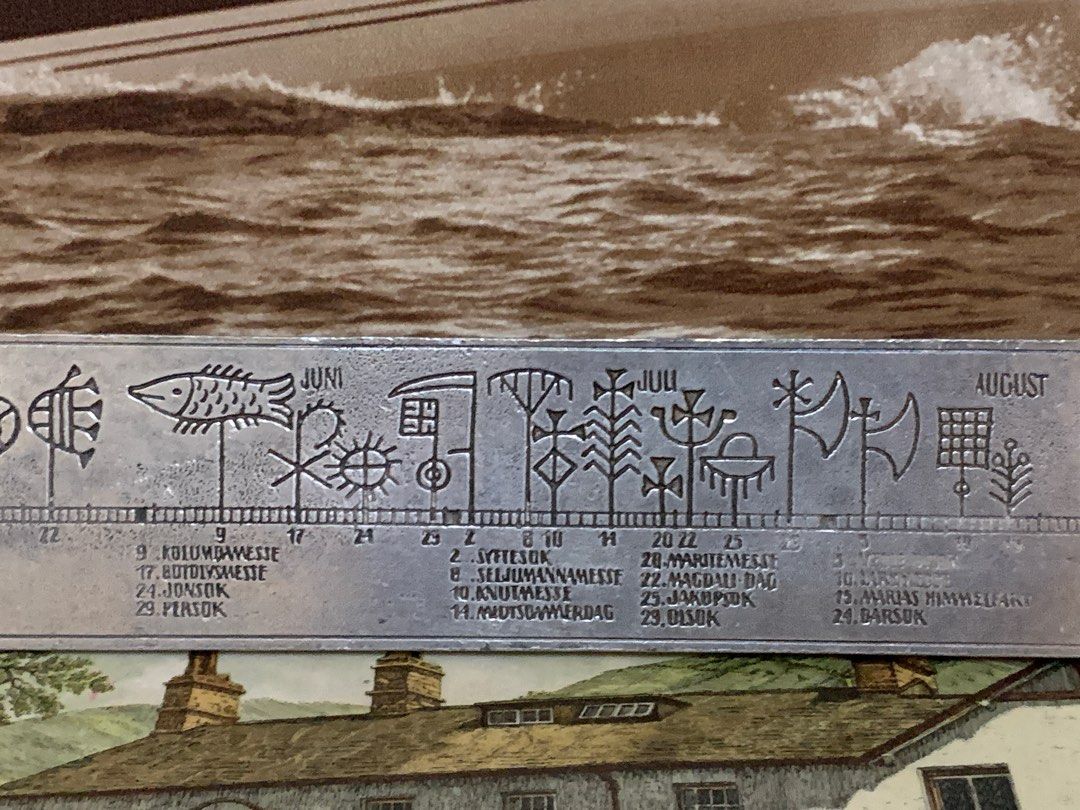 JUNI
JULI
AUGUST
22 9 17 24 29 2 8 10 14 20 22 25 29 3
9 .KOLUMBAMESSE
17. BOTOLVSMESSE
24. JONSOK
29. PERSOK
2. .SYFTESOK
8 .SELJUMANNAMESSE
10. KNUTMESSE
14. MIDTSOMMERDAG
20. MARITEMESSE
22. MAGDALI-DAG
25. JAKOPSOK
29. OLSOK
3
10.
15. MARIAS HIMMELFART
24. BARSOK